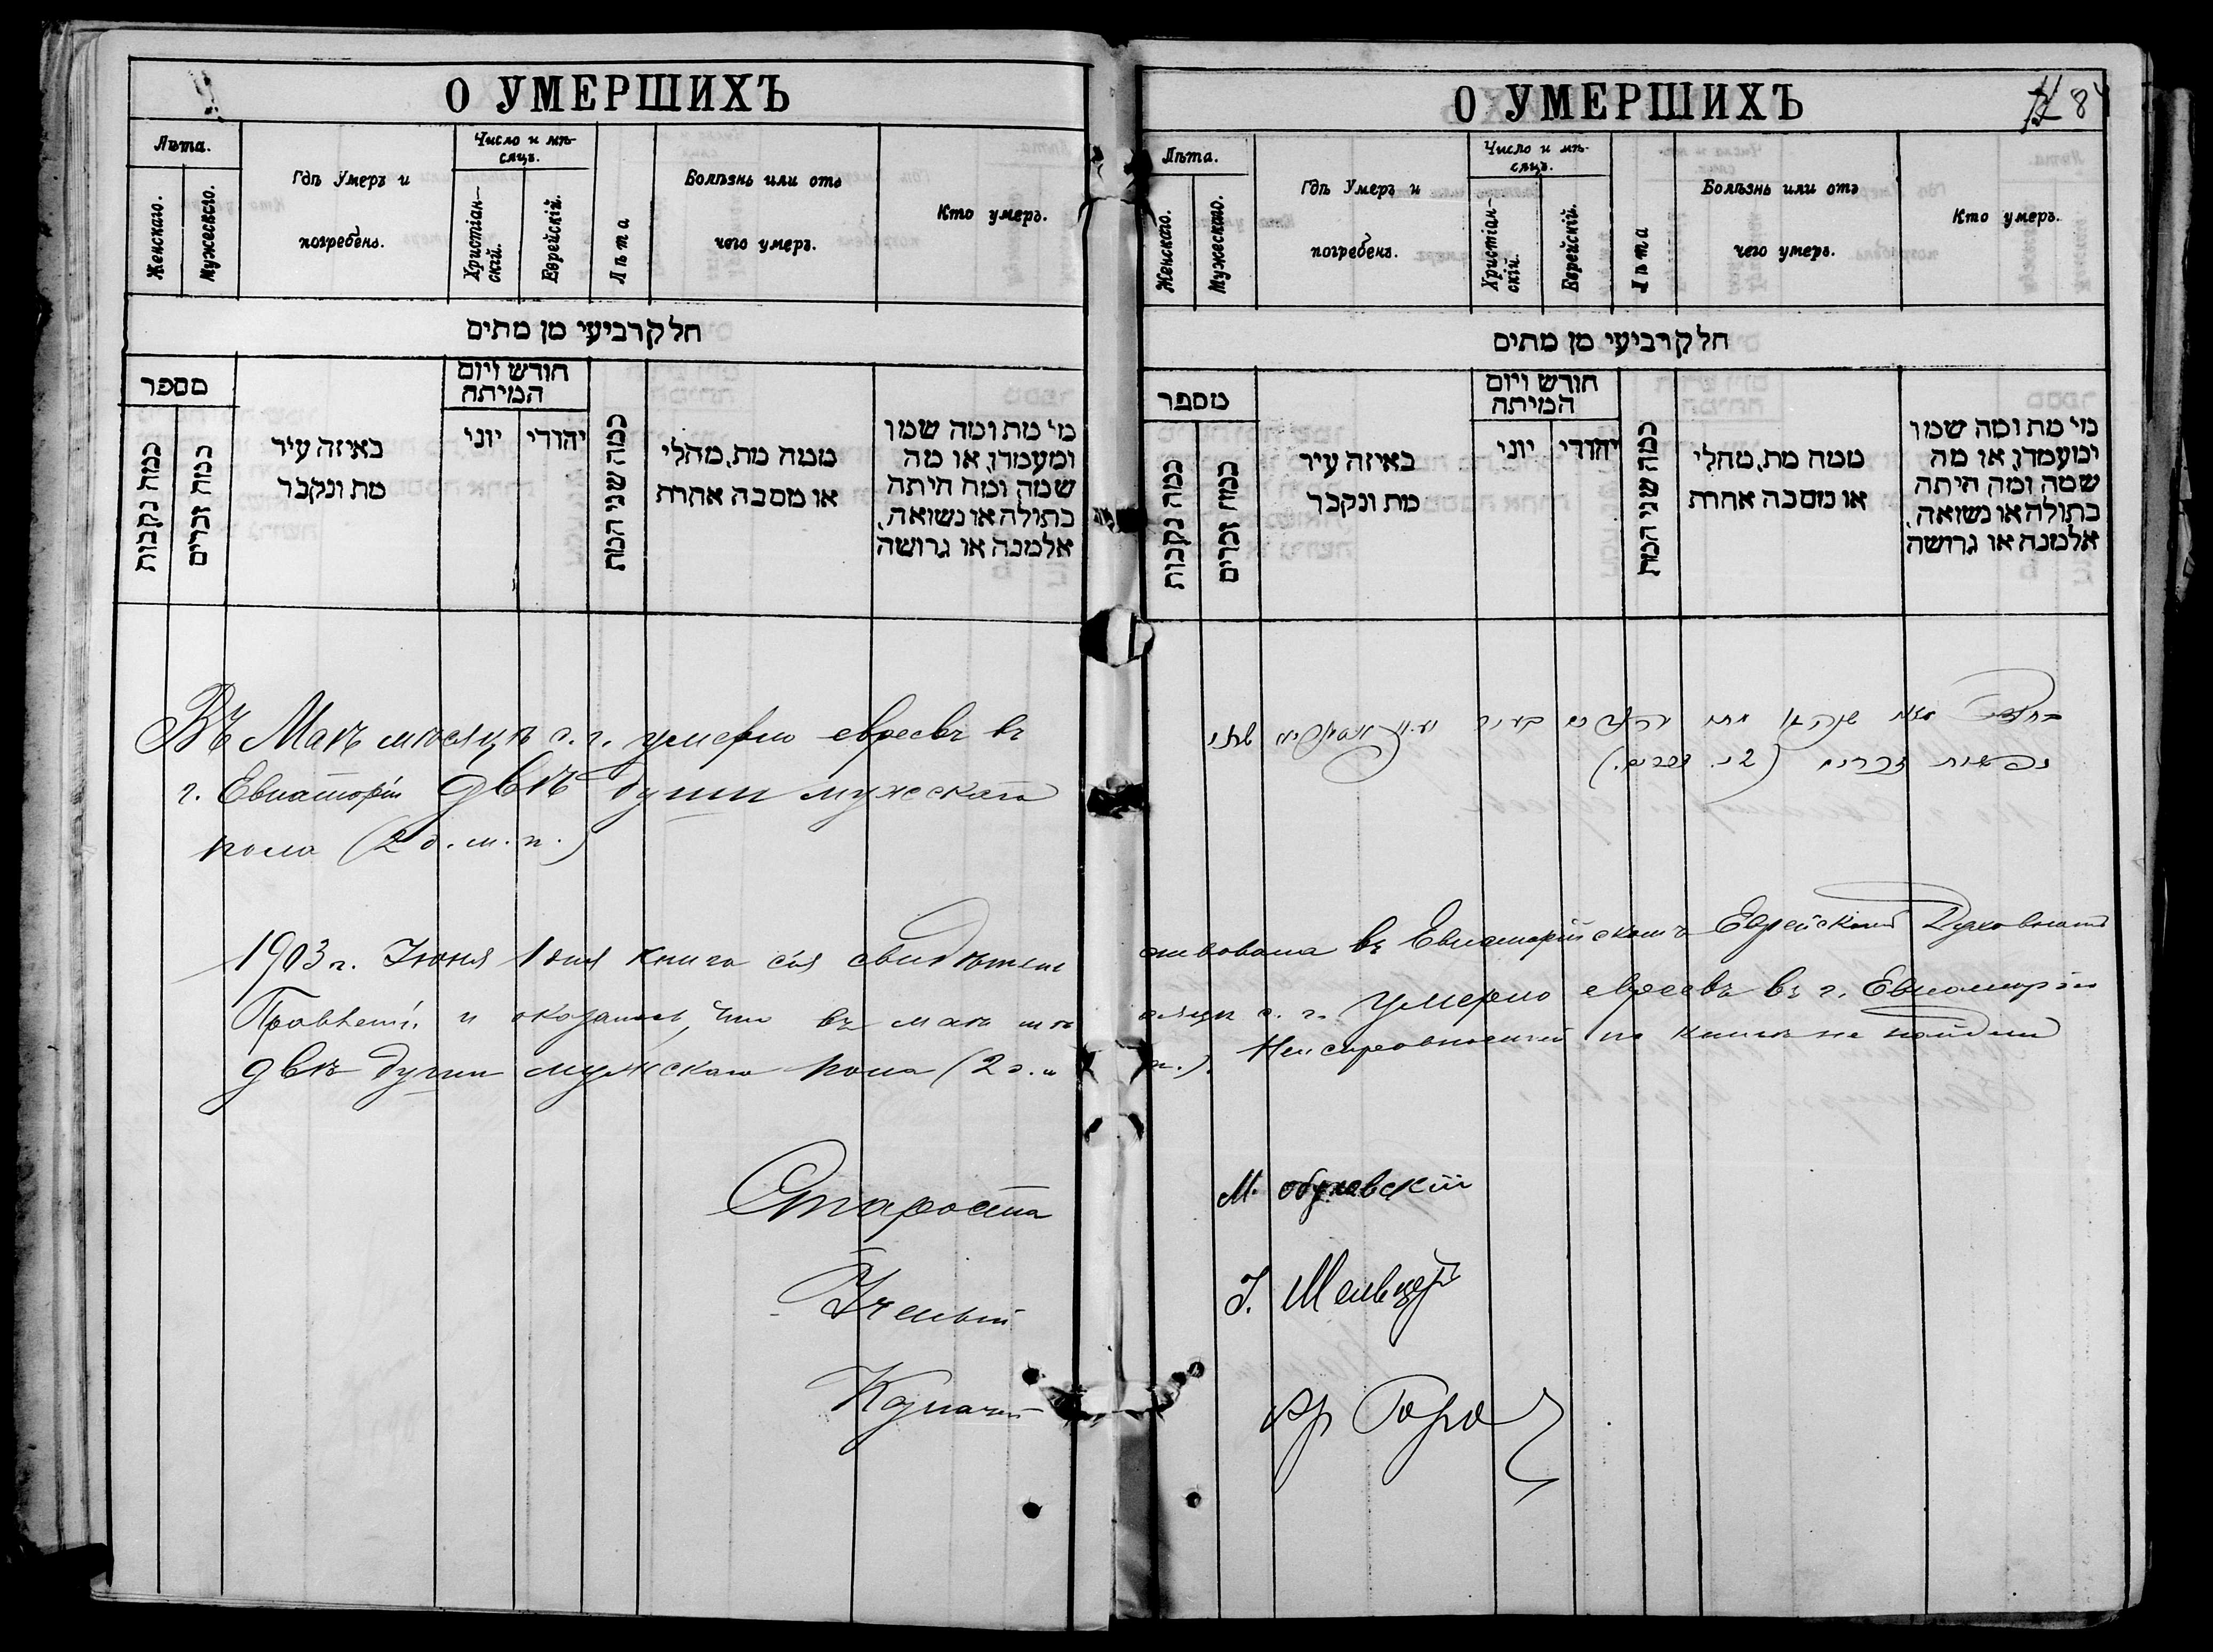 О УМЕРШИХЪ
Лѣта.
Женскаго.
Мужескаго.
Гдѣ Умеръ и
погребенъ.
Число и мѣ-
сяцъ.
Христіан-
скій.
Еврейскій.
Лѣта
Болѣзнь или отъ
чего умеръ.
Кто умеръ.
חלק רביעי מן מתים
מספר
כמה נקבות
כמה זכרים
באיזה עיר
מת ונקבר
חודש ויום
המיתה
יוני
יהודי
כמה שני המת
ממה מת, מחלי
או מסבה אחרת
מי מת ומה שמו
ומעמדו, או מה
שמה ומה היתה
בתולה או נשואה,
אלמנה או גרושה
Въ Маѣ мѣсяцѣ с. г. умерло евреевъ въ
г. Евпаторіи двѣ души мужскаго
пола (2 д. м. п.)
1903 г. Іюня 1 дня книга сія свидѣтель
Правленіи и оказалось, что въ маѣ мѣ
двѣ души мужскаго пола (2 д. м
Староста
Ученый
Казначей
О УМЕРШИХЪ
84
Лѣта.
Женскаго.
Мужескаго.
Гдѣ Умеръ и
погребенъ.
Число и мѣ-
сяцъ.
Христіан-
скій.
Еврейскій.
Лѣта
Болѣзнь или отъ
чего умеръ.
Кто умеръ.
חלק רביעי מן מתים
מספר
כמה נקבות
כמה זכרים
באיזה עיר
מת ונקבר
חודש ויום
המיתה
יוני
יהודי
כמה שני המת
ממה מת, מחלי
או מסבה אחרת
מי מת ומה שמו
ומעמדו, או מה
שמה ומה היתה
בתולה או נשואה,
אלמנה או גרושה
בחודש מאי שנה זו מתו יהודים בעיר שתי
נפשות זכרים (2 נ. זכרים.)
ствована въ Евпаторійскомъ Еврейскомъ Духовномъ
сяцѣ с. г. умерло евреевъ въ г. Евпаторіи
п.). Неисправностей по книгѣ не найдено
М.